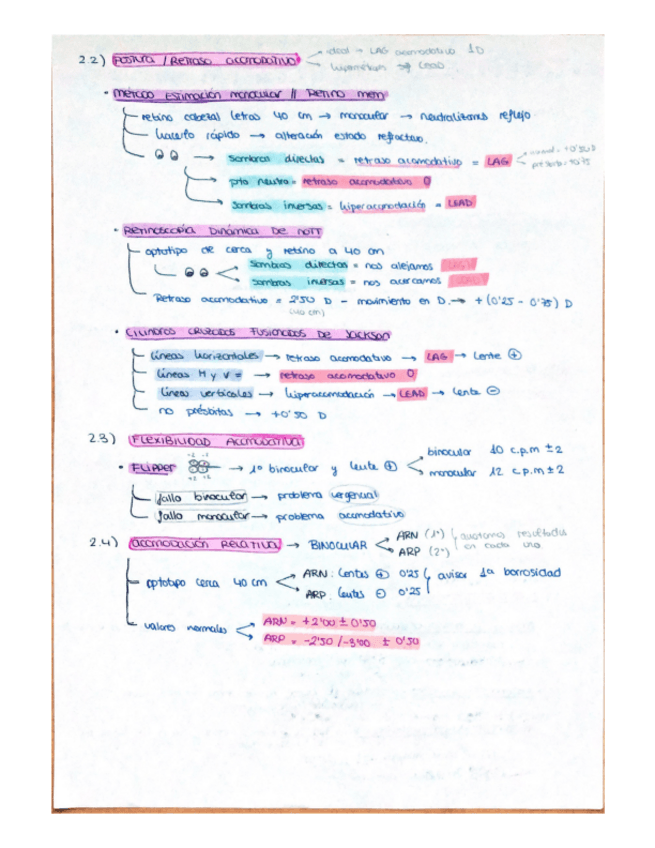 2.2) POSTURA / RETRASO ACOMODATIVO → ideal → LAG acomodativo 1D
→ hipermétropes → LEAD
• MÉTODO ESTIMACIÓN MONOCULAR // RETINO MEM
retino cabezal letras 40 cm → monocular → neutralizamos reflejo
hacerlo rápido → alteración estado refractivo.
→ sombras directas = retraso acomodativo = LAG
→ pto neutro = retraso acomodativo 0
sombras inversas = hiperacomodación = LEAD
• RETINOSCOPÍA DINÁMICA DE NOTT
optotipo de cerca y retino a 40 cm
sombras directas = nos alejamos LAG
sombras inversas = nos acercamos LEAD
Retraso acomodativo = 2'50 D - movimiento en D. → + (0'25 - 0'75) D
(40 cm)
• CILINDROS CRUZADOS FUSIONADOS DE JACKSON
líneas horizontales → retraso acomodativo → LAG → lente ⊕
líneas H y V = → retraso acomodativo 0
líneas verticales → hiperacomodación → LEAD → lente ⊖
no présbitas → +0'50 D
2.3) FLEXIBILIDAD ACOMODATIVA
• FLIPPER -2 -2 +2 +2 → 1º binocular y lente ⊕
binocular 10 c.p.m ±2
monocular 12 c.p.m ±2
fallo binocular → problema vergencial
fallo monocular → problema acomodativo
2.4) ACOMODACIÓN RELATIVA → BINOCULAR
ARN (1º)
ARP (2º)
anotamos resultados
en cada uno
optotipo cerca 40 cm
ARN: lentes ⊕ 0'25
ARP: lentes ⊖ 0'25
avisar 1ª borrosidad
valores normales
ARN = +2'00 ± 0'50
ARP = -2'50 / -3'00 ± 0'50